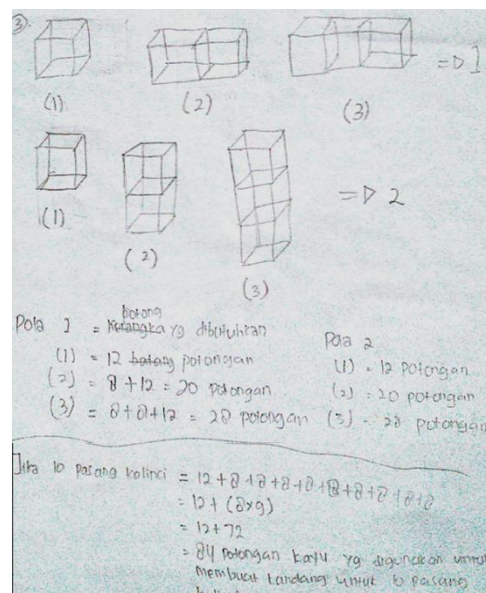 3.
(1) (2) (3) => 1
(1) (2) (3) => 2
Pola 1 = potong yg dibutuhkan
(1) = 12 potongan
(2) = 8 + 12 = 20 potongan
(3) = 8 + 8 + 12 = 28 potongan
Pola 2
(1) = 12 potongan
(2) = 20 potongan
(3) = 28 potongan
Jika 10 pasang kelinci = 12 + 8 + 8 + 8 + 8 + 8 + 8 + 8 + 8 + 8
= 12 + (8x9)
= 12 + 72
= 84 potongan kayu yg digunakan untuk
membuat kandang untuk 10 pasang